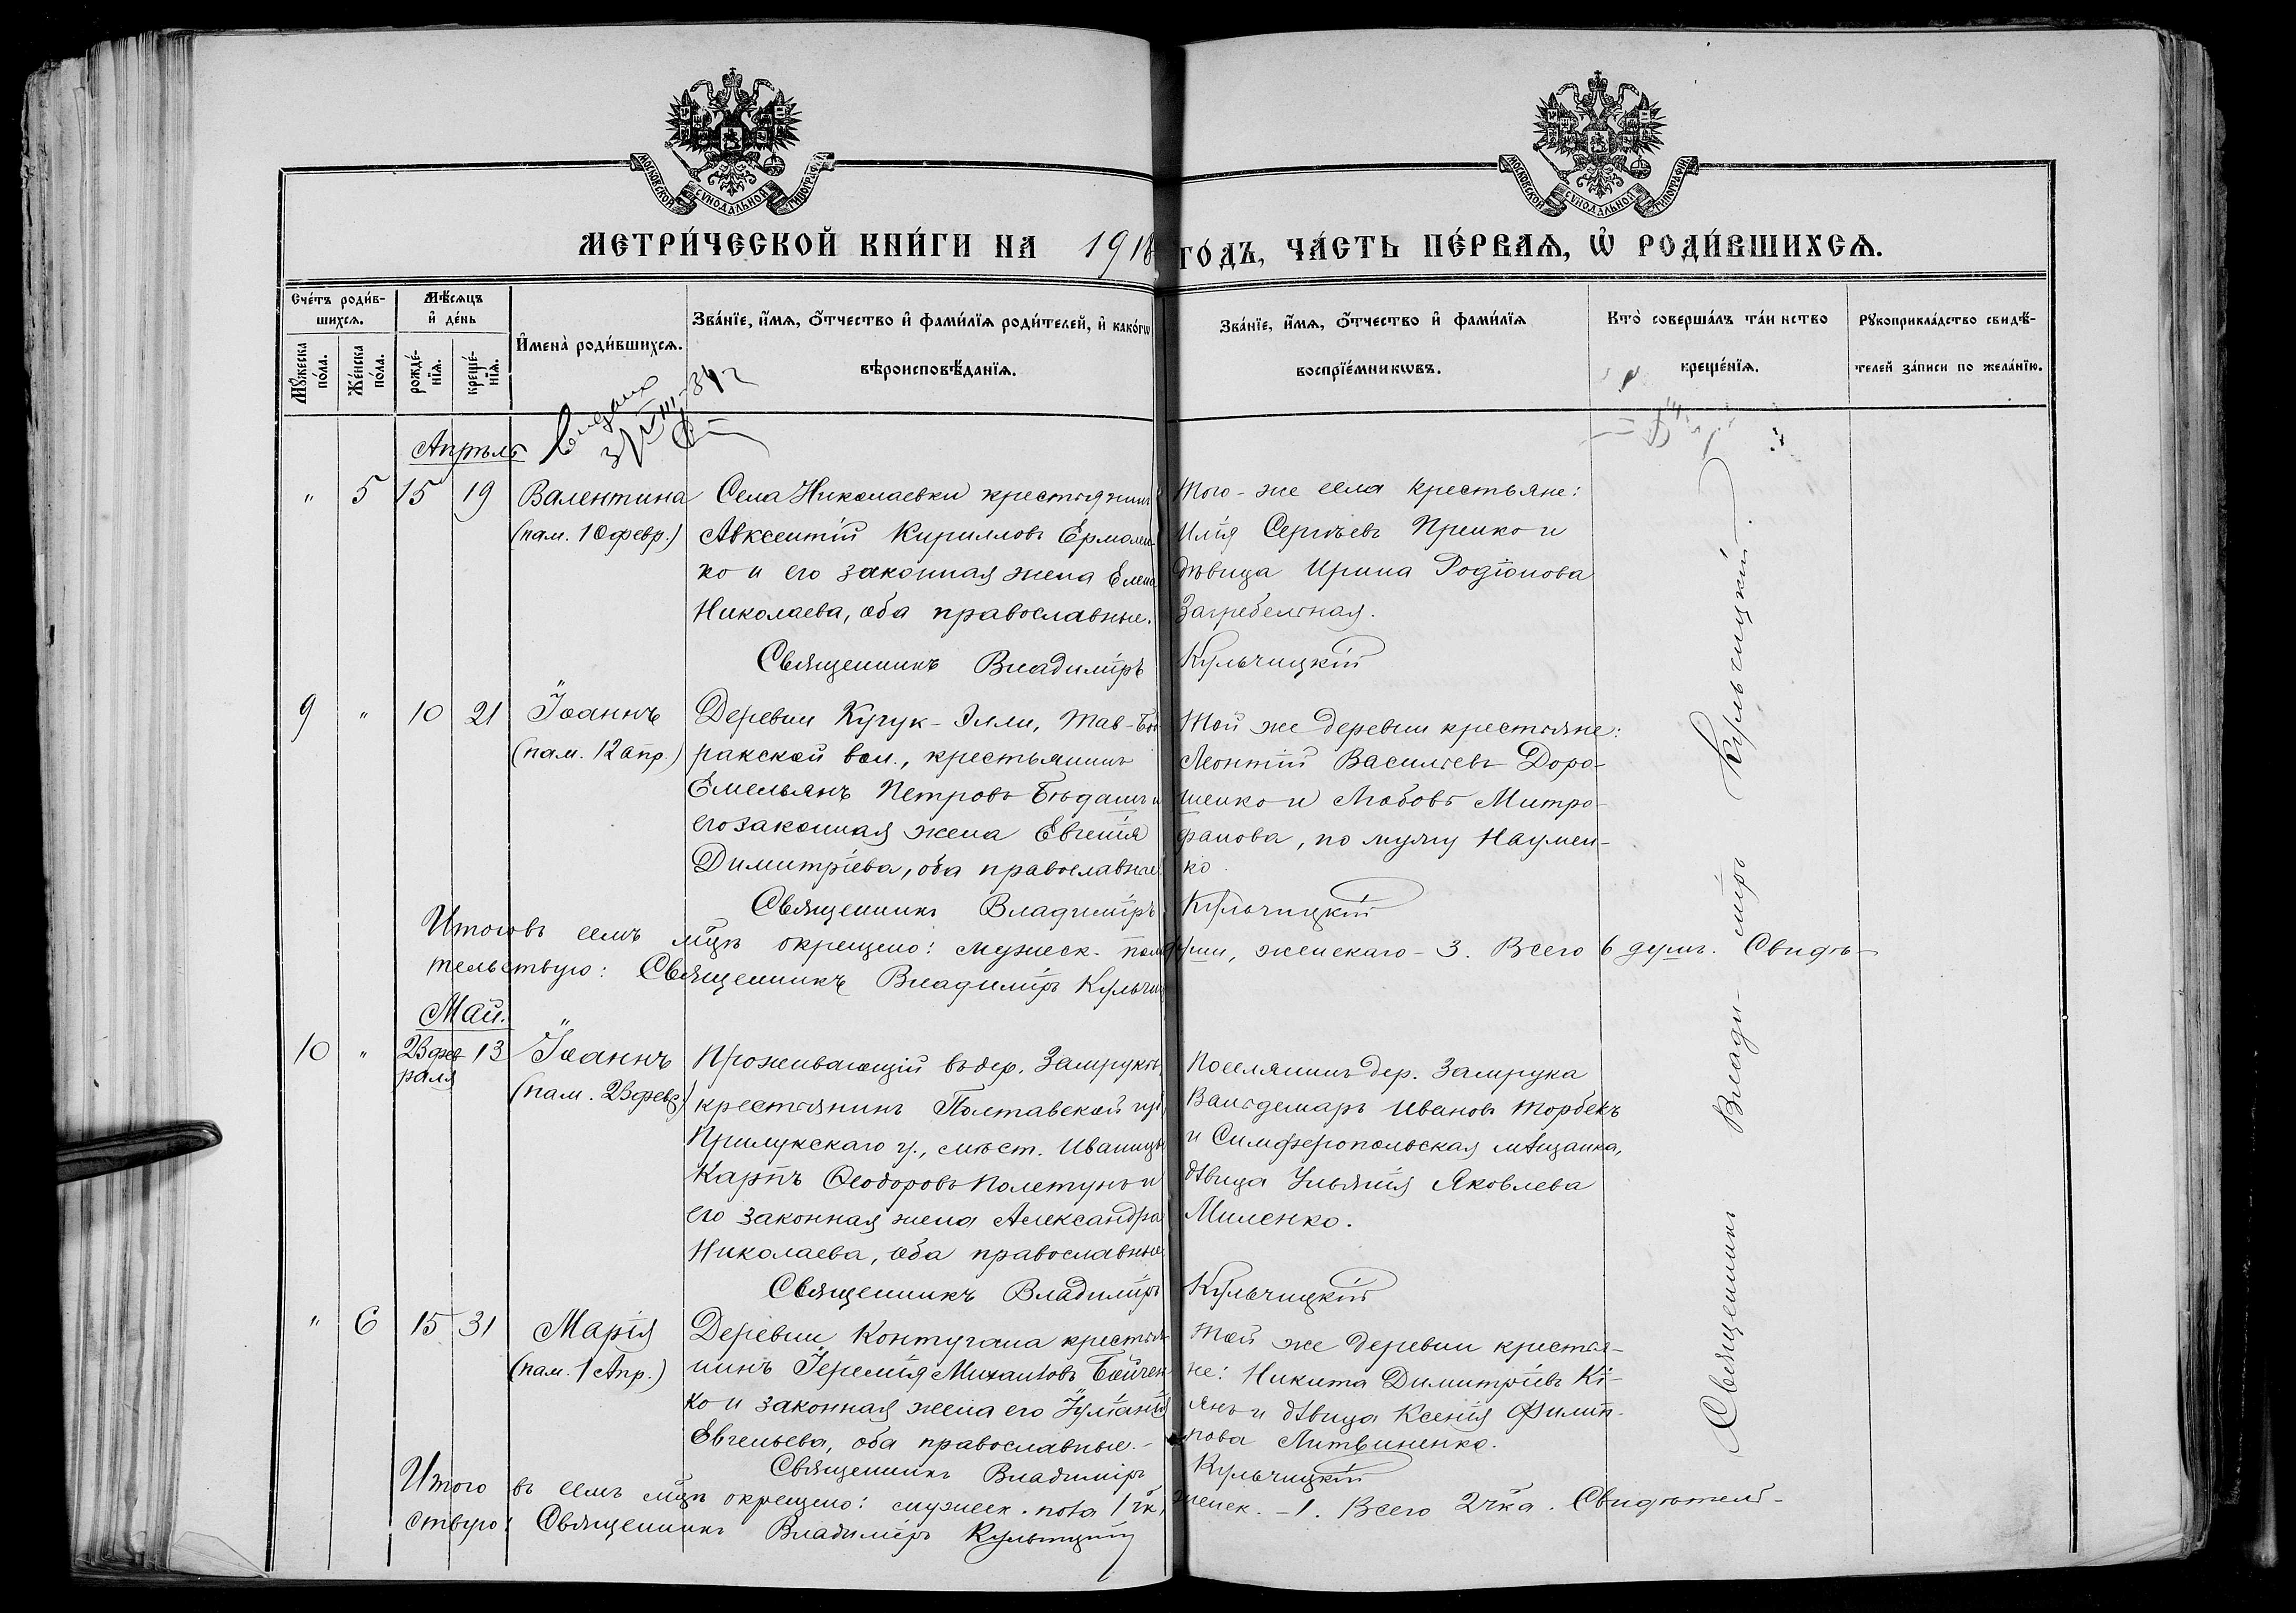 МОСКОВСКОЙ СѴНОДАЛЬНОЙ ТИПОГРАФІИ
МОСКОВСКОЙ СѴНОДАЛЬНОЙ ТИПОГРАФІИ
МЕТРИ́ЧЕСКОЙ КНИ́ГИ НА 1918 ГО́ДЪ, ЧА́СТЬ ПЕ́РВАѦ, Ѽ РОДИ́ВШИХСѦ.
Сче́тъ роди́в-
шихсѧ.
Мꙋ́жеска по́ла.
Же́нска по́ла.
Мѣ́сѧцъ
и҆ де́нь
рожде́-
нїѧ.
креще́-
нїѧ.
И҆мена̀ роди́вшихсѧ.
Зва́нїе, и҆́мѧ, ѻ҆́тчество и҆ фами́лїѧ роди́телей, и҆ како́гѡ
вѣроисповѣ́данїѧ.
Зва́нїе, и҆́мѧ, ѻ҆́тчество и҆ фами́лїѧ
воспрїе́мникѡвъ.
Кто̀ соверша́лъ та́инство
креще́нїѧ.
Рꙋкоприкла́дство свидѣ́-
телей за́писи по жела́нїю.
Апрѣль
" 5 15 19 Валентина
(пам. 10 февр.)
Села Николаевки крестьянинъ
Авксентій Кирилловъ Ермолен-
ко и его законная жена Елена
Николаева, оба православные.
Того-же села крестьяне:
Илія Сергѣевъ Прешко и
дѣвица Ирина Родіонова
Загребельная.
Священникъ Владиміръ Кульчицкій
9 " 10 21 Іоаннъ
(пам. 12 апр.)
Деревни Кучук-Элли, Тав-Бо-
ракской вол., крестьянинъ
Емельянъ Петровъ Бѣданъ и
его законная жена Евгенія
Димитріева, оба православные
Той же деревни крестьяне:
Леонтій Васильевъ Доро-
шенко и Любовь Митро-
фанова, по мужу Наумен-
ко.
Священникъ Владиміръ Кульчицкій
Итого въ семъ мѣц. окрещено: мужеск. пола души, женскаго - 3. Всего 6 душъ. Свидѣ-
тельствую: Священникъ Владиміръ Кульчиц
Май.
10 " 23 фев-
раля 13 Іоаннъ
(пам. 23 февр.)
Проживающій въ дер. Замрукѣ,
крестьянинъ Полтавской губ.
Прилукскаго у., мѣст. Иваницы
Карпъ Ѳеодоровъ Полетунъ и
его законная жена Александра
Николаева, оба православные
Поселянинъ дер. Замрука
Вальдемаръ Ивановъ Торбекъ
и Симферопольская мѣщанка,
дѣвица Ульянія Яковлева
Миленко.
Священникъ Владиміръ Кульчицкій
" 6 15 31 Марія
(пам. 1 Апр.)
Деревни Контугана крестья-
нинъ Іеремія Михаиловъ Бойчен-
ко и законная жена его Іуліанія
Евгеньева, оба православные.-
Той же деревни крестья-
не: Никита Димитріевъ Кі-
янъ и дѣвица Ксенія Филип-
пова Литвиненко.
Священникъ Владиміръ Кульчицкій
Итого въ семъ мѣц. окрещено: мужеск. пола 1 чк., женск. - 1. Всего 2 чка. Свидѣтель-
ствую: Священникъ Владиміръ Кульчицкій
Священникъ Влади-міръ Кульчицкій.